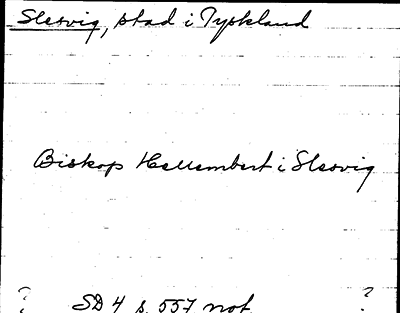 Slesvig, stad i Tyskland
Biskop Hellembert i Slesvig
? SD 4 s. 557 not. ?